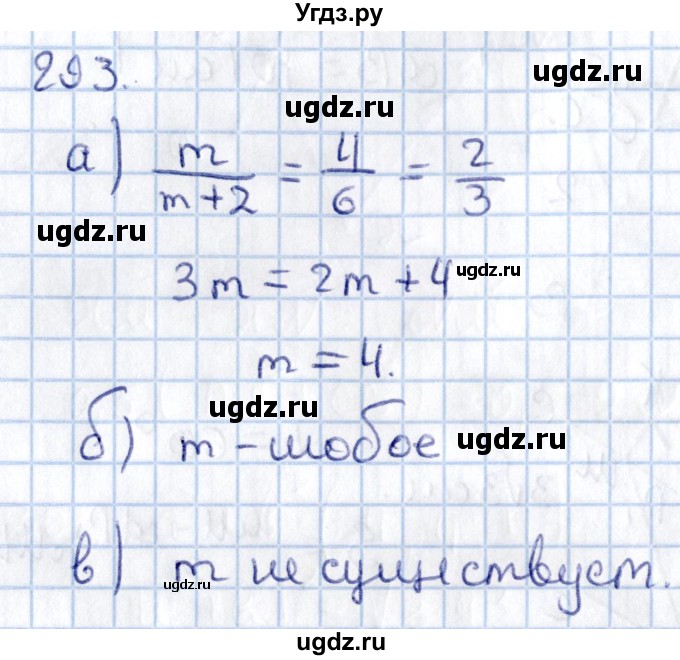 Угдз.ру
293.
ugdz.ru
ugdz.ru
а) m/(m+2) = 4/6 = 2/3
ugdz.ru
3m = 2m + 4
ugdz.ru
m = 4.
ugdz.ru
б) m – любое
ugdz.ru
в) m не существует.
ugdz.ru
ugdz.ru